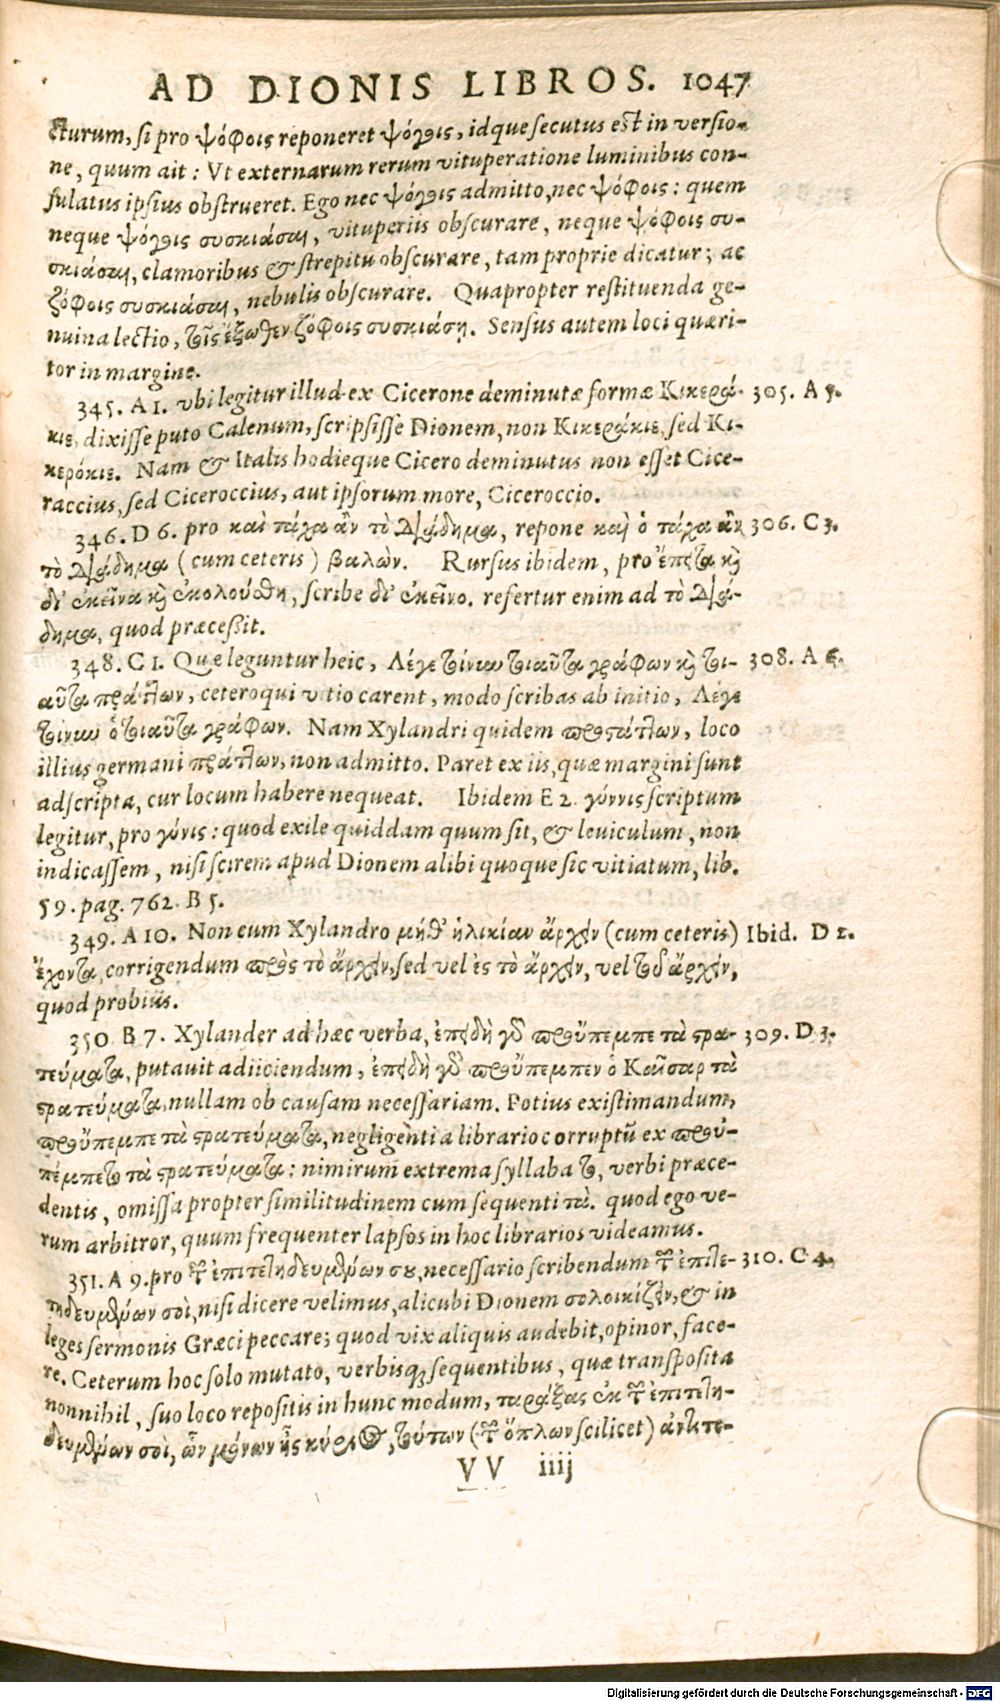 AD DIONIS LIBROS. 1047
cturum, si pro ψόφοις reponeret ψόγοις, idque secutus est in versio-
ne, quum ait: Vt externarum rerum vituperatione luminibus con-
sulatus ipsius obstrueret. Ego nec ψόγοις admitto, nec ψόφοις: quem
neque ψόγοις συσκιάσαι, vituperiis obscurare, neque ψόφοις συ-
σκιάσαι, clamoribus & strepitu obscurare, tam proprie dicatur; ac
ζόφοις συσκιάσαι, nebulis obscurare. Quapropter restituenda ge-
nuina lectio, τοῖς ἔξωθεν ζόφοις συσκιάσῃ. Sensus autem loci quæri-
tor in margine.
345. A 1. vbi legitur illud ex Cicerone deminutæ formæ Κικερά- 305. A 3.
κιε, dixisse puto Calenum, scripsisse Dionem, non Κικεράκιε, sed Κι-
κερόκιε. Nam & Italis hodieque Cicero deminutus non esset Cice-
raccius, sed Ciceroccius, aut ipsorum more, Ciceroccio.
346. D 6. pro καὶ τάχα ἂν τὸ διάδημα, repone καὶ ὁ τάχα ἂν 306. C 3.
τὸ διάδημα (cum ceteris) βαλών. Rursus ibidem, pro ἔπειτα καὶ
δι' ἐκεῖνα καὶ ἐκολούθη, scribe δι' ἐκεῖνο. refertur enim ad τὸ διά-
δημα, quod præcessit.
348. C 1. Quæ leguntur heic, Λέγε τοίνυν τοιαῦτα γράφων καὶ τοι- 308. A 6.
αῦτα πράττων, ceteroqui vitio carent, modo scribas ab initio, Λέγε
τοίνυν ὁ τοιαῦτα γράφων. Nam Xylandri quidem προστάττων, loco
illius germani πράττων, non admitto. Paret ex iis, quæ margini sunt
adscripta, cur locum habere nequeat. Ibidem E 2. γύννις scriptum
legitur, pro γύνις: quod exile quiddam quum sit, & leuiculum, non
indicassem, nisi scirem apud Dionem alibi quoque sic vitiatum, lib.
59. pag. 762. B 5.
349. A 10. Non cum Xylandro μήθ' ἡλικίαν ἄρχειν (cum ceteris) Ibid. D 2.
ἔχοντα, corrigendum πρὸς τὸ ἄρχειν, sed vel ἐς τὸ ἄρχειν, vel τοῦ ἄρχειν,
quod probius.
350. B 7. Xylander ad hæc verba, ἐπειδὴ γὰρ προὔπεμπε τὰ στρα- 309. D 3.
τεύματα, putauit adiiciendum, ἐπειδὴ γὰρ προὔπεμπεν ὁ Καῖσαρ τὰ
στρατεύματα, nullam ob causam necessariam. Potius existimandum,
προὔπεμπε τὰ στρατεύματα, negligenti a librario corruptũ ex προὐ-
πέμπετο τὰ στρατεύματα: nimirum extrema syllaba το, verbi præce-
dentis, omissa propter similitudinem cum sequenti τὰ. quod ego ve-
rum arbitror, quum frequenter lapsos in hoc librarios videamus.
351. A 9. pro τῶν ἐπιτετηδευμένων σου, necessario scribendum τῶν ἐπιτε- 310. C 4.
τηδευμένων σοὶ, nisi dicere velimus, alicubi Dionem σολοικίζειν, & in
leges sermonis Græci peccare; quod vix aliquis audebit, opinor, face-
re. Ceterum hoc solo mutato, verbisq; sequentibus, quæ transposita
nonnihil, suo loco repositis in hunc modum, ταράξας ἐκ τῶν ἐπιτετη-
δευμένων σοὶ, ὧν μόνων ᾖς κύριος, τούτων (τῶν ὅπλων scilicet) ἀντιτε-
VV iiij
Digitalisierung gefördert durch die Deutsche Forschungsgemeinschaft - DFG